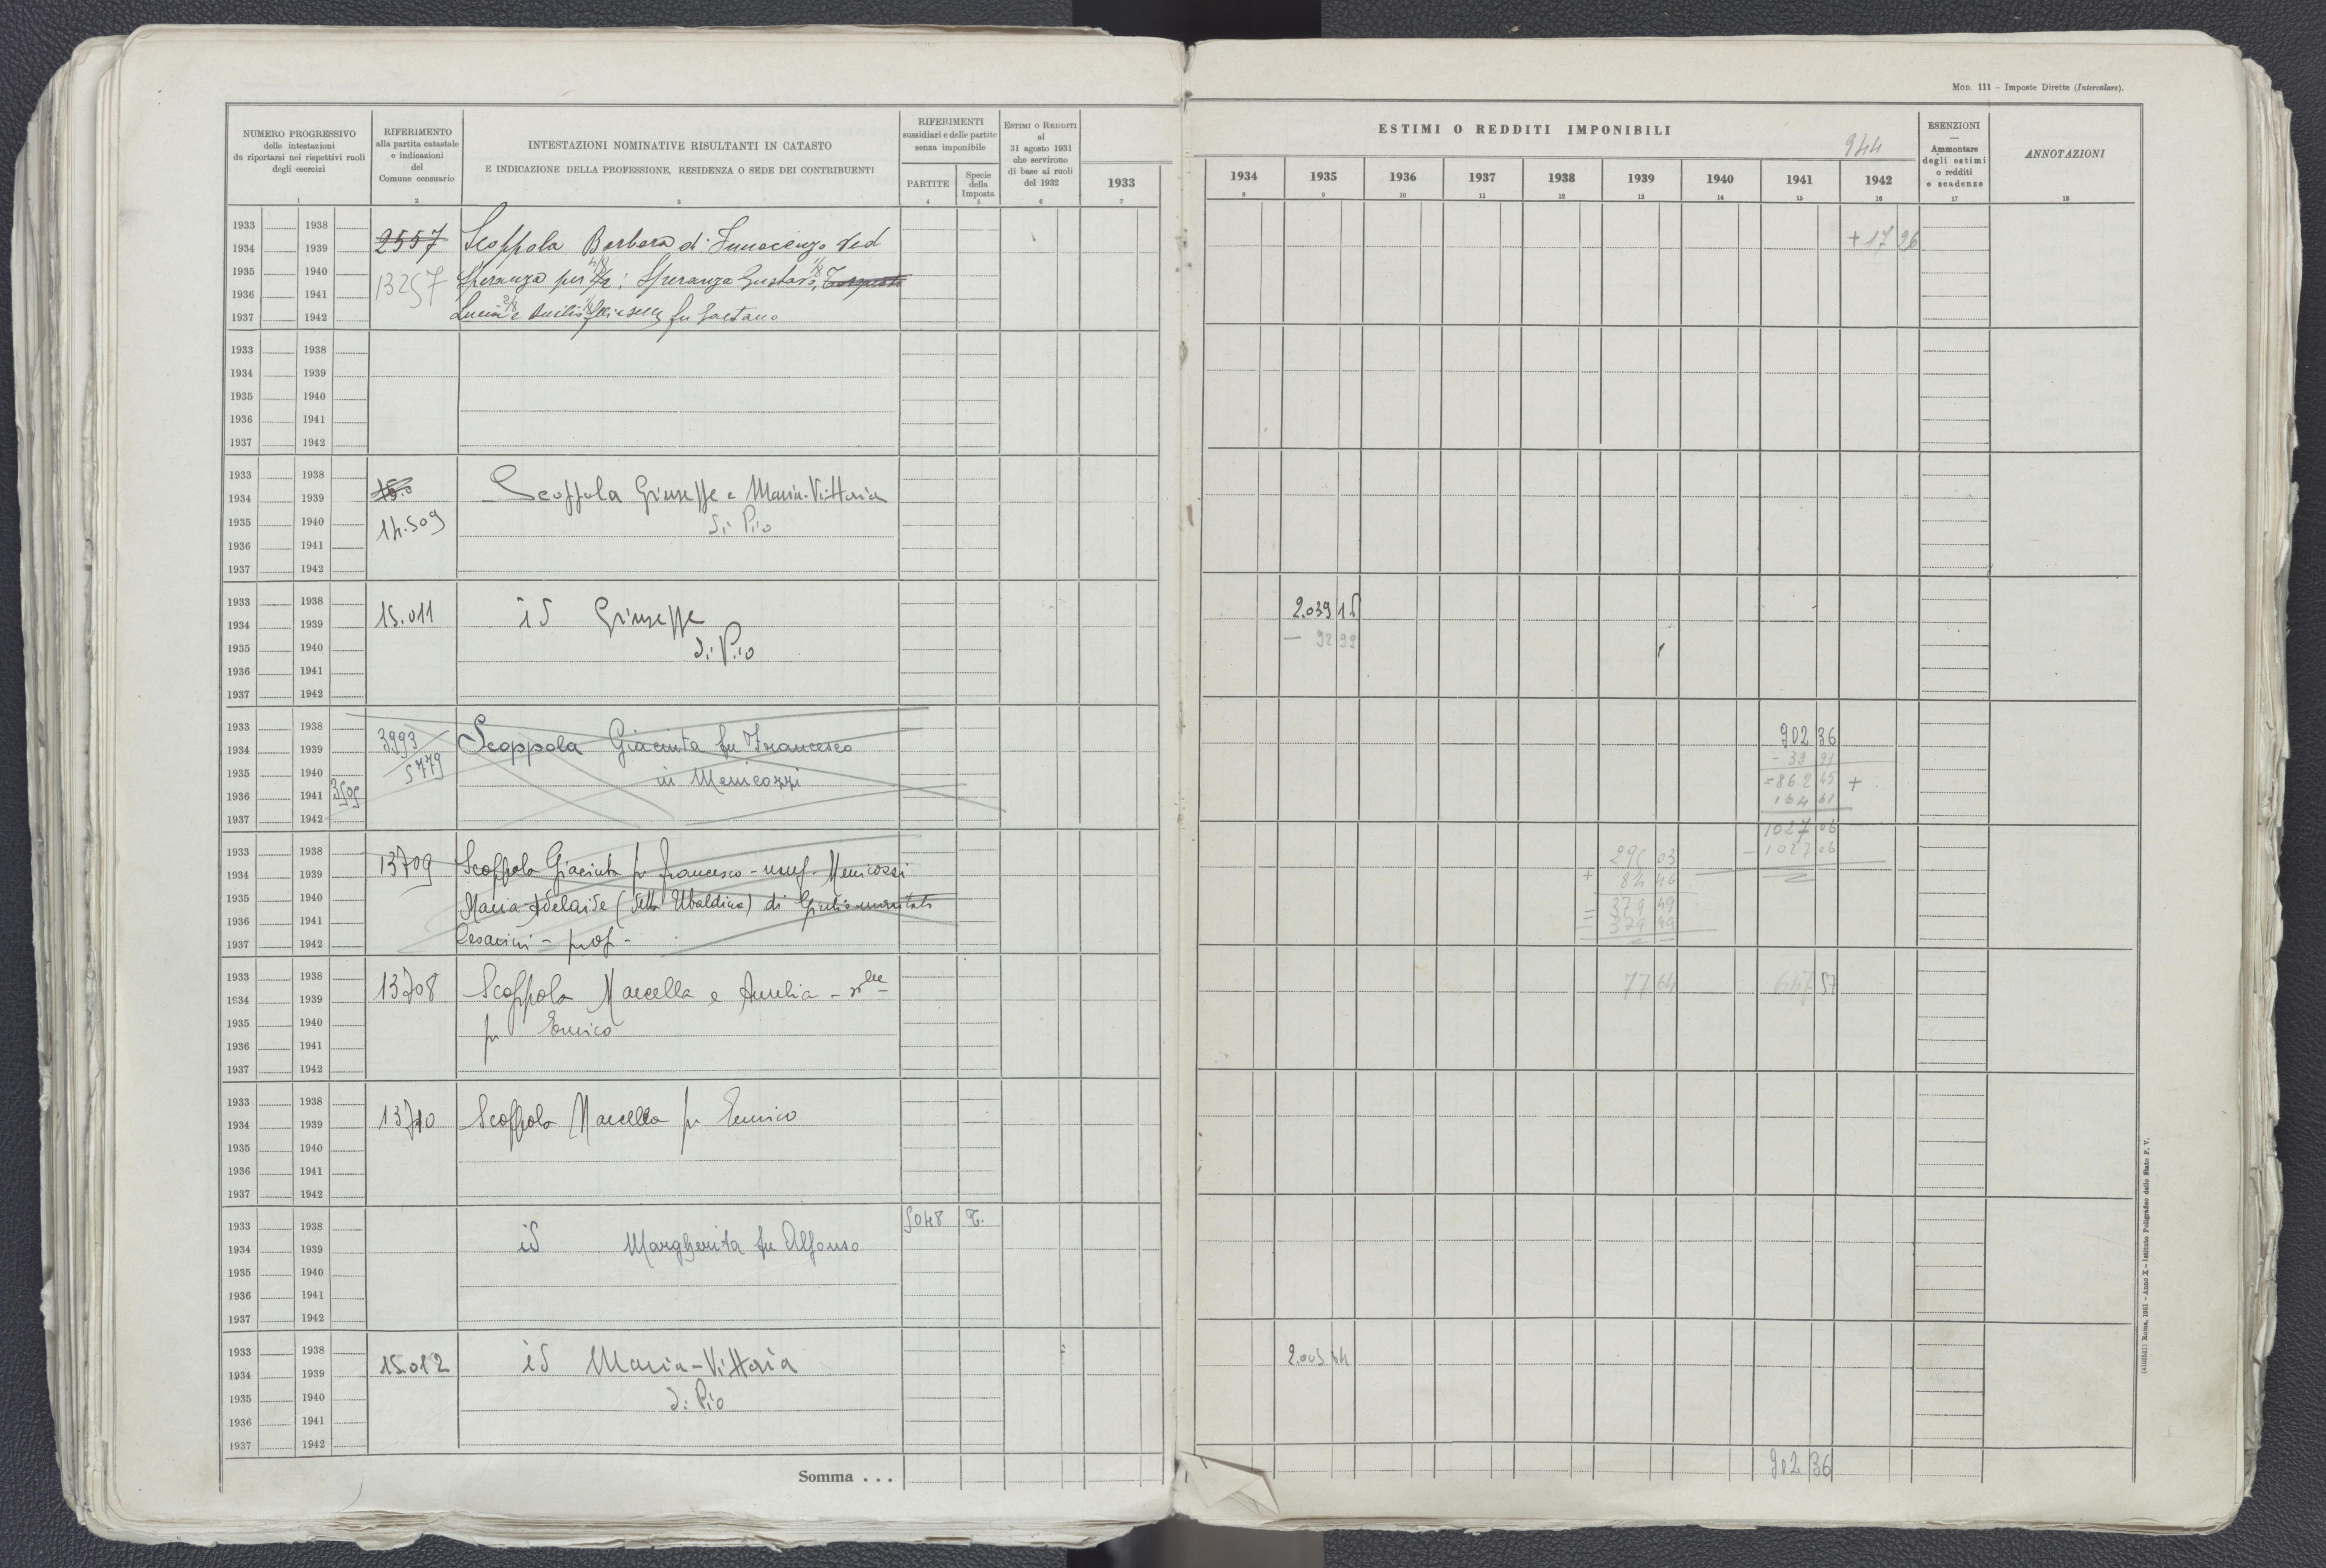 MOD. 111 – Imposte Dirette (Intercalare).
NUMERO PROGRESSIVO
delle intestazioni
da riportarsi nei rispettivi ruoli
degli esercizi
1
RIFERIMENTO
alla partita catastale
e indicazioni
del
Comune censuario
2
INTESTAZIONI NOMINATIVE RISULTANTI IN CATASTO
E INDICAZIONE DELLA PROFESSIONE, RESIDENZA O SEDE DEI CONTRIBUENTI
3
RIFERIMENTI
sussidiari e delle partite
senza imponibile
PARTITE
4
Specie
della
Imposta
5
ESTIMI O REDDITI
al
31 agosto 1931
che servirono
di base ai ruoli
del 1932
6
1933
7
ESTIMI O REDDITI IMPONIBILI
944
1934 1935 1936 1937 1938 1939 1940 1941 1942
8 9 10 11 12 13 14 15 16
ESENZIONI
—
Ammontare
degli estimi
o redditi
e scadenze
17
ANNOTAZIONI
18
1933 1938
1934 1939 2557 Scoppola Barbara di Innocenzo ved + 17 26
1935 1940 13257 Speranza per 4/8 ; Speranza Gustavo 1/8,
1936 1941
1937 1942 Lucia 2/8 e Duilio fu Gaetano
1933 1938
1934 1939
1935 1940
1936 1941
1937 1942
1933 1938
1934 1939 Scoppola Giuseppe e Maria-Vittoria
1935 1940 14.509 di Pio
1936 1941
1937 1942
1933 1938 2.039 15
1934 1939 15.011 id Giuseppe
1935 1940 di Pio — 92 99
1936 1941
1937 1942
1933 1938 3993 902 36
1934 1939 5779 Scoppola Giacinta fu Francesco - 39 91
1935 1940 in Menicozzi = 862 45 +
1936 1941 3505 164 61
1937 1942 1027 06
1933 1938 295 03 - 1027 06
1934 1939 13709 Scoppola Giacinta fu Francesco - usuf. Menicozzi + 84 46
1935 1940 Maria Adelaide (detta Ubaldina) di Giulio maritata = 379 49
1936 1941 = 379 49
1937 1942 Cesarini - prop -
1933 1938
1934 1939 13708 Scoppola Marcella e Aurelia - slle 77 64 647 57
1935 1940 fu Enrico
1936 1941
1937 1942
1933 1938
1934 1939 13710 Scoppola Marcella fu Enrico
1935 1940
1936 1941
1937 1942
1933 1938 5048 T.
1934 1939 id Margherita fu Alfonso
1935 1940
1936 1941
1937 1942
1933 1938
1934 1939 15.012 id Maria-Vittoria 2.005 64
1935 1940 di Pio
1936 1941
1937 1942
Somma . . . 902 36
Roma, 1931 - Anno X - Istituto Poligrafico dello Stato P. V.